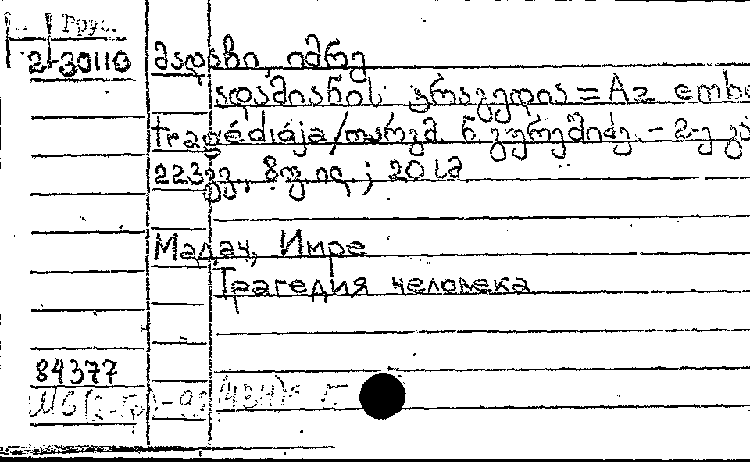 Груз.
2-30110 მადაჩი, იმრე
ადამიანის ტრაგედია = Az embe
tragédiája/თარგმ. ნ. გურეშიძე. – 2-ე გა
223 გვ., 8 ფ. ილ.; 20 სმ
Мадач, Имре
Трагедия человека
84377
И6(2-Гр)-95